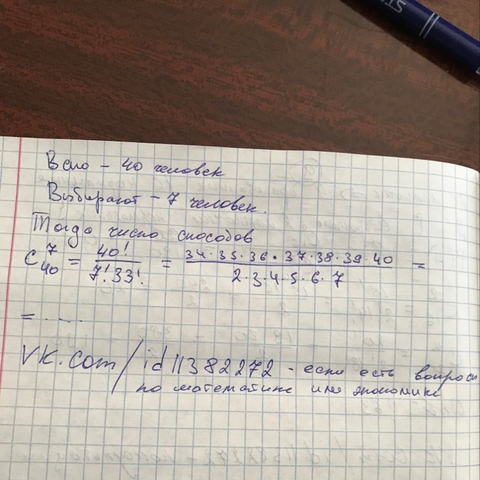 Всего – 40 человек
Выбирают – 7 человек.
Тогда число способов
C⁷₄₀ = 40! / 7! 33! = 34·35·36·37·38·39 40 / 2·3·4·5·6·7 =
= .....
vk.com/id11382272 - если есть вопросы
по математике или экономике